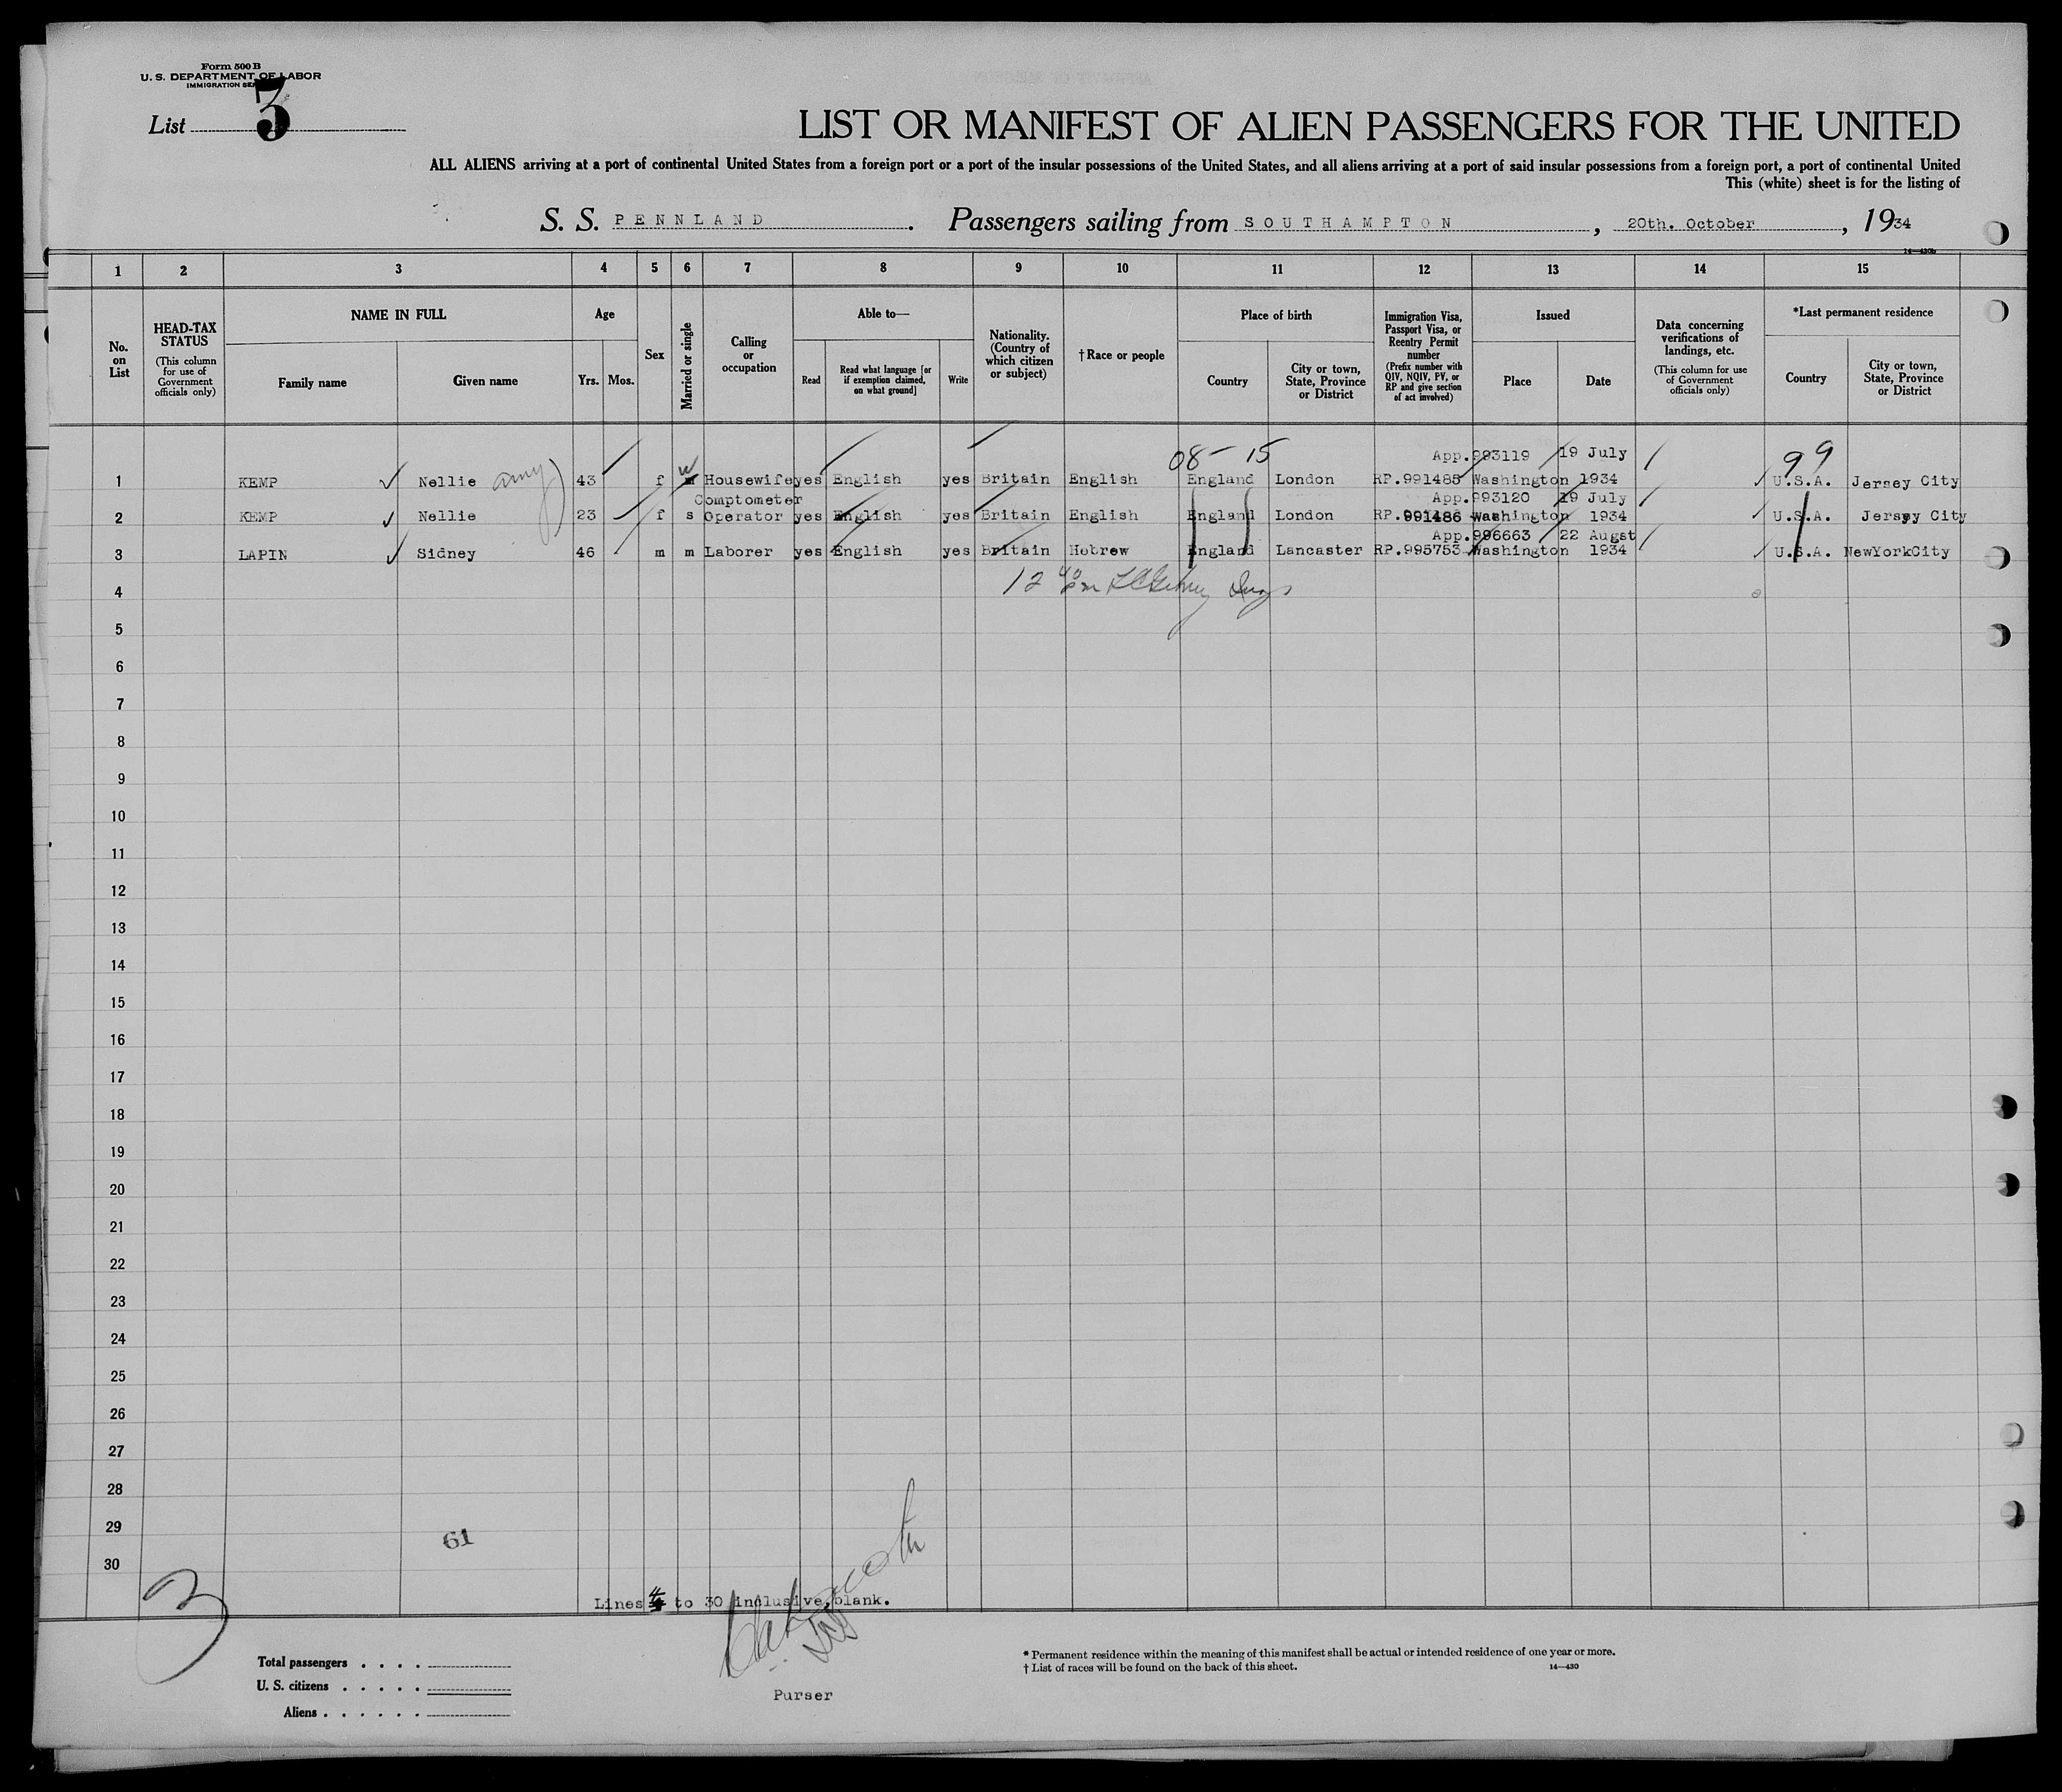 Form 500 B
U. S. DEPARTMENT OF LABOR
IMMIGRATION
List 3
LIST OR MANIFEST OF ALIEN PASSENGERS FOR THE UNITED
ALL ALIENS arriving at a port of continental United States from a foreign port or a port of the insular possessions of the United States, and all aliens arriving at a port of said insular possessions from a foreign port, a port of continental United
This (white) sheet is for the listing of
S. S. PENNLAND. Passengers sailing from SOUTHAMPTON, 20th. October, 1934
14—430b
1 2 3 4 5 6 7 8 9 10 11 12 13 14 15
No. on List
HEAD-TAX STATUS
(This column for use of Government officials only)
NAME IN FULL
Family name
Given name
Age
Yrs.
Mos.
Sex
Married or single
Calling or occupation
Able to—
Read
Read what language [or if exemption claimed, on what ground]
Write
Nationality. (Country of which citizen or subject)
†Race or people
Place of birth
Country
City or town, State, Province or District
Immigration Visa, Passport Visa, or Reentry Permit number
(Prefix number with QIV, NQIV, PV, or RP and give section of act involved)
Issued
Place
Date
Data concerning verifications of landings, etc.
(This column for use of Government officials only)
*Last permanent residence
Country
City or town, State, Province or District
08- 15
99
App.993119 19 July
1 KEMP Nellie Amy 43 f w m Housewife yes English yes Britain English England London RP.991485 Washington 1934 U.S.A. Jersey City
Comptometer App.993120 19 July
2 KEMP Nellie 23 f s Operator yes English yes Britain English England London RP.991486 Washington 1934 U.S.A. Jersey City
App.996663 22 Augst
3 LAPIN Sidney 46 m m Laborer yes English yes Britain Hebrew England Lancaster RP.995753 Washington 1934 U.S.A. NewYorkCity
4
12
5
6
7
8
9
10
11
12
13
14
15
16
17
18
19
20
21
22
23
24
25
26
27
28
29
61
30
3
Lines 4 to 30 inclusive, blank.
Total passengers . . . .
U. S. citizens . . . . .
Aliens . . . . . .
Purser
* Permanent residence within the meaning of this manifest shall be actual or intended residence of one year or more.
† List of races will be found on the back of this sheet.
14—430